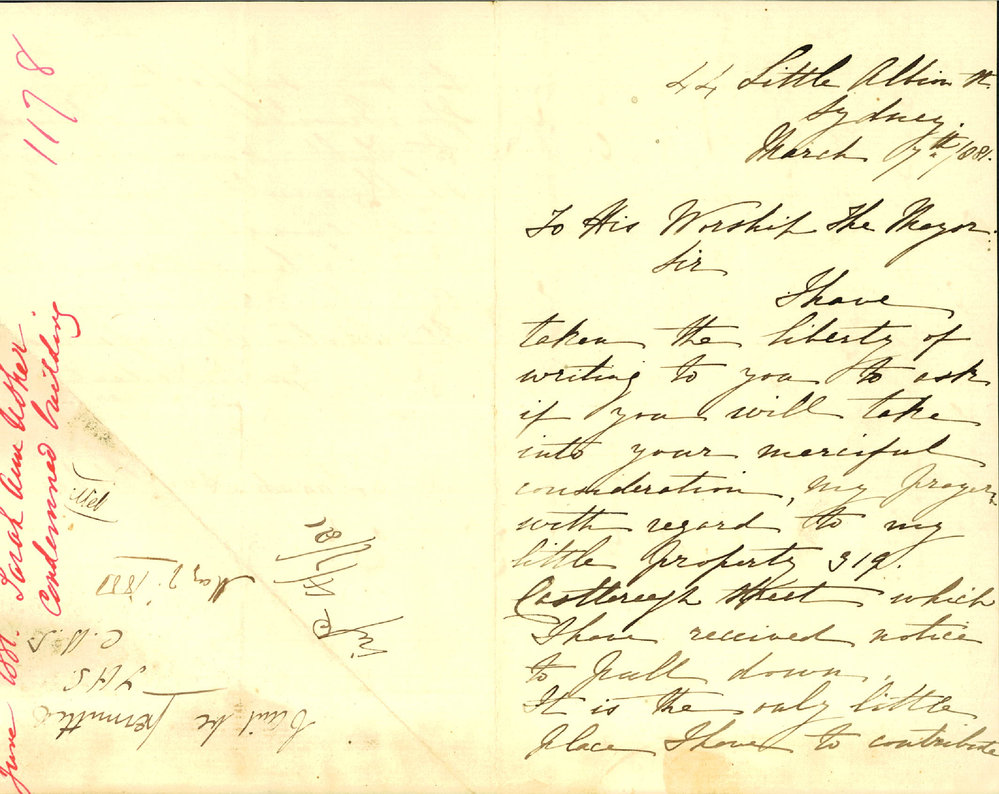 44 Little Albion St
Sydney.
March 17th/1881.
To His Worship The Mayor.
Sir
I have
taken the liberty of
writing to you to ask
if you will take
into your merciful
consideration, my prayer
with regard to my
little property 319.
Castlereagh Street which
I have received notice
to pull down.
It is the only little
place I have to contribute
1178
June 1881. Sarah Ann Asher.
Condemned building
May 2. 1881
C.B.S
T.H.S.
Can't be permitted